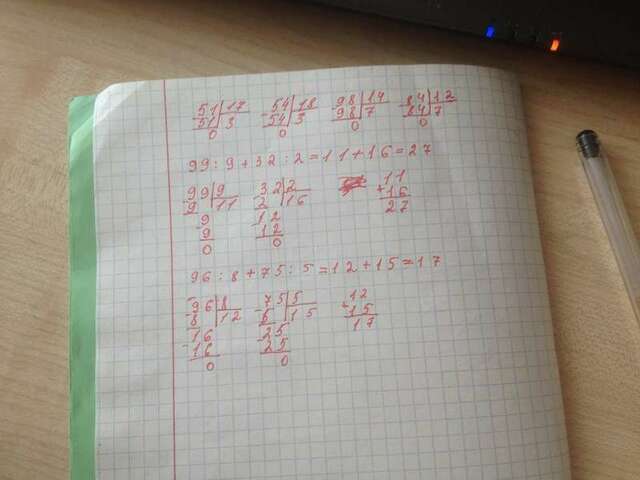 51|17 54|18 98|14 84|12
51|3 54|3 98|7 84|7
0 0 0 0
99:9+32:2=11+16=27
99|9 32|2 11
9 |11 2 |16 +16
9 12 27
9 12
0 0
96:8+75:5=12+15=17
96|8 75|5 12
8 |12 5 |15 +15
16 25 17
16 25
0 0